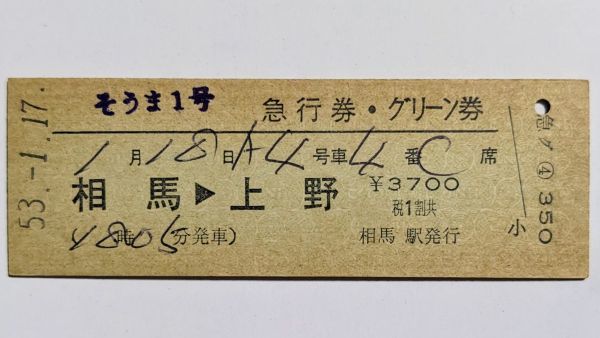 53.-1.17.
そうま1号
急行券・グリーン券
1月18日 4号車 4番C席
相馬▶上野
¥3700
税1割共
時05分発車)
相馬駅発行
小
急 ④ 350